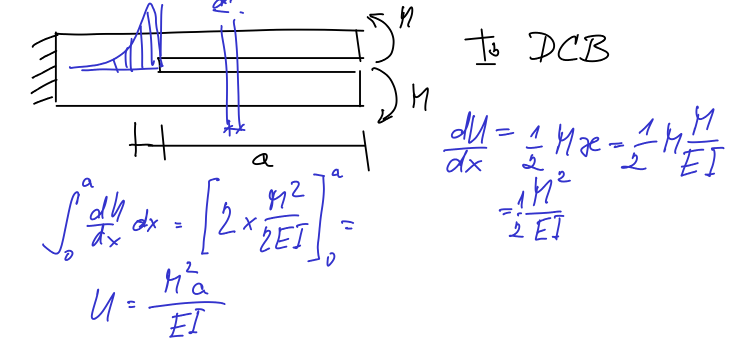 M
I_b DCB
M
dx
a
dU/dx = 1/2 M æ = 1/2 M M/EI
= 1/2 M²/EI
∫₀ᵃ dU/dx dx = [2 × M²/2EI]₀ᵃ =
U = M²a/EI